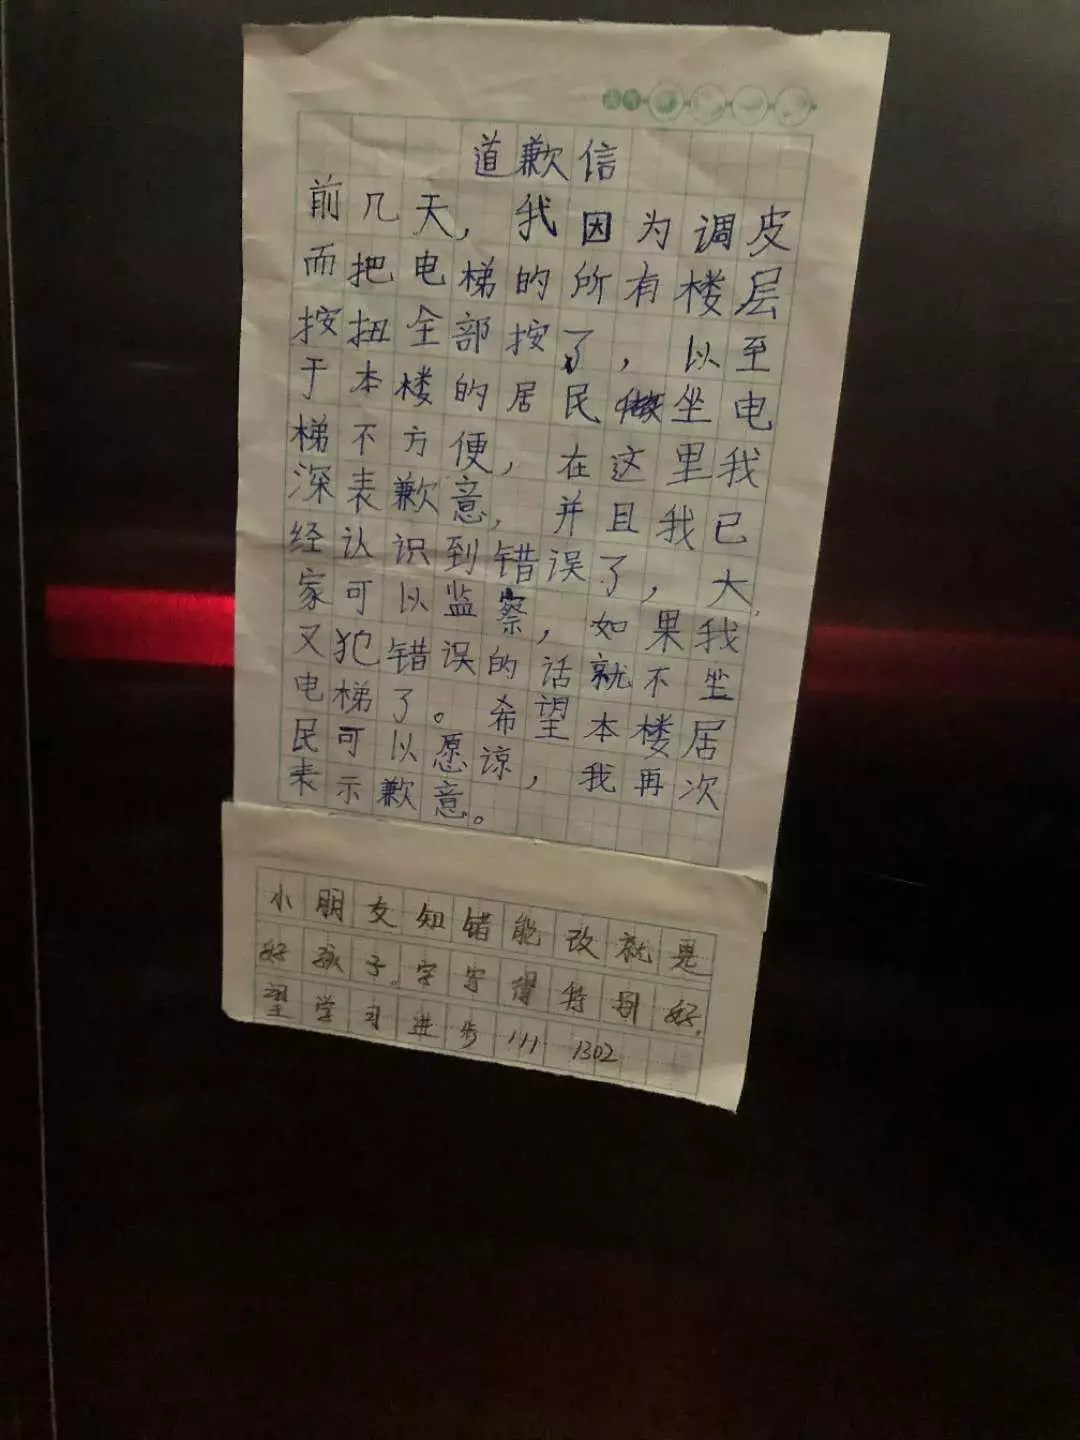 道歉信
前几天，我因为调皮
而把电梯的所有楼层
按扭全部按了，以至
于本楼的居民坐电
梯不方便，在这里我
深表歉意，并且我已
经认识到错误了，大
家可以监察，如果我
又犯错误的话就不坐
电梯了。希望本楼居
民可以愿谅，我再次
表示歉意。
小朋友知错能改就是
好孩子。字写得特别好，
望学习进步!!! 1302